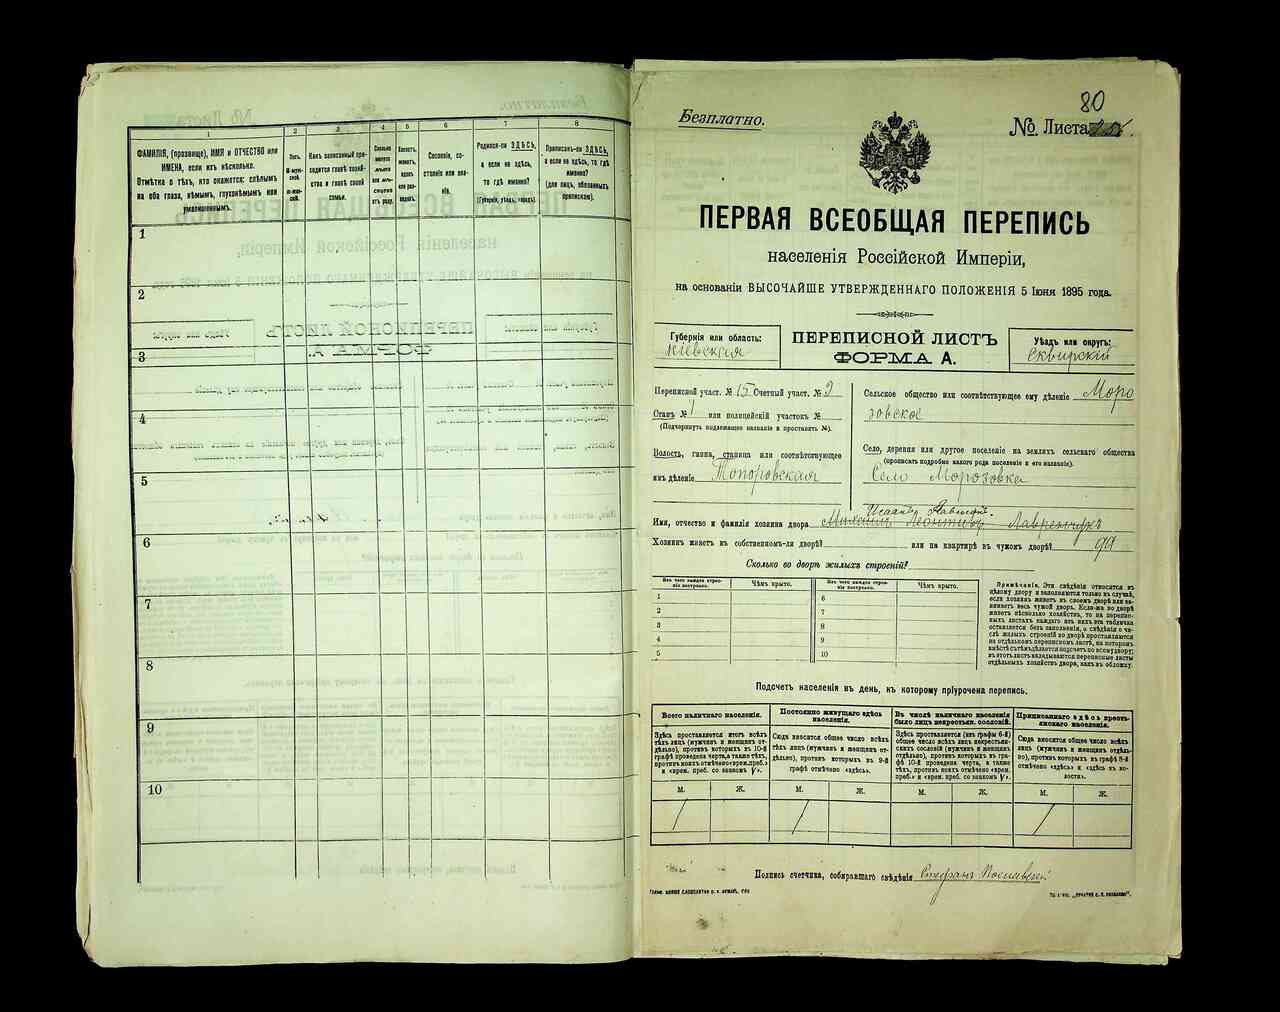 1
2
3
4
5
6
7
8
ФАМИЛІЯ, (прозвище), ИМЯ и ОТЧЕСТВО или
ИМЕНА, если ихъ нѣсколько.
Отмѣтка о тѣхъ, кто окажется: слѣпымъ
на оба глаза, нѣмымъ, глухонѣмымъ или
умалишеннымъ.
Полъ.
М-муж-
ской.
Ж-жен-
скій.
Какъ записанный при-
ходится главѣ хозяй-
ства и главѣ своей
семьи.
Сколько
минуло
лѣтъ
или мѣ-
сяцевъ
отъ роду.
Холостъ,
женатъ,
вдовъ
или раз-
веденъ.
Сословіе, со-
стояніе или зва-
ніе.
Родился-ли ЗДѢСЬ,
а если не здѣсь,
то гдѣ именно?
(Губернія, уѣздъ, городъ).
Приписанъ-ли ЗДѢСЬ,
а если не здѣсь, то гдѣ
именно?
(для лицъ, обязанныхъ
припискою).
1
2
3
4
5
6
7
8
9
10
80
Безплатно.
№ Листа
ПЕРВАЯ ВСЕОБЩАЯ ПЕРЕПИСЬ
населенія Россійской Имперіи,
на основаніи ВЫСОЧАЙШЕ УТВЕРЖДЕННАГО ПОЛОЖЕНІЯ 5 Іюня 1895 года.
Губернія или область:
Кіевская
ПЕРЕПИСНОЙ ЛИСТЪ
ФОРМА А.
Уѣздъ или округъ:
Сквирскій
Переписной участ. № 15 Счетный участ. № 2
Станъ № 1 или полицейскій участокъ №
(Подчеркнуть надлежащее названіе и проставить №).
Волость, гмина, станица или соотвѣтствующее
имъ дѣленіе Топоровская
Сельское общество или соотвѣтствующее ему дѣленіе Моро
зовское
Село, деревня или другое поселеніе на земляхъ сельскаго общества
(прописать подробно какого рода поселеніе и его названіе).
Село Морозовка
Имя, отчество и фамилія хозяина двора Лаврентчукъ
Хозяинъ живетъ въ собственномъ-ли дворѣ? или на квартирѣ въ чужомъ дворѣ? да
Сколько во дворѣ жилыхъ строеній?
Изъ чего каждое строе-
ніе построено.
Чѣмъ крыто.
Изъ чего каждое строе-
ніе построено.
Чѣмъ крыто.
1
2
3
4
5
6
7
8
9
10
Примѣчаніе. Эти свѣдѣнія относятся къ
цѣлому двору и заполняются только въ случаѣ,
если хозяинъ живетъ въ своемъ дворѣ или за-
нимаетъ весь чужой дворъ. Если-же во дворѣ
живетъ нѣсколько хозяйствъ, то на перепис-
ныхъ листахъ каждаго изъ нихъ эта табличка
оставляется безъ заполненія, а свѣдѣнія о чи-
слѣ жилыхъ строеній во дворѣ проставляются
на отдѣльномъ переписномъ листѣ, на которомъ
вмѣстѣ съ тѣмъ дѣлается подсчетъ по всему двору;
въ этотъ листъ вкладываются переписные листы
отдѣльныхъ хозяйствъ двора, какъ въ обложку.
Подсчетъ населенія въ день, къ которому пріурочена перепись.
Всего наличнаго населенія.
Здѣсь проставляется итогъ всѣхъ
тѣхъ лицъ (мужчинъ и женщинъ от-
дѣльно), противъ которыхъ въ 10-й
графѣ проведена черта, а также тѣхъ,
противъ коихъ отмѣчено «врем. преб.»
и «врем. преб. со знакомъ V».
Постоянно живущаго здѣсь
населенія.
Сюда вносится общее число всѣхъ
тѣхъ лицъ (мужчинъ и женщинъ от-
дѣльно), противъ которыхъ въ 9-й
графѣ отмѣчено «здѣсь».
Въ числѣ наличнаго населенія
было лицъ некрестьян. сословій.
Здѣсь проставляется (изъ графы 6-й)
общее число всѣхъ лицъ некрестьян-
скихъ сословій (мужчинъ и женщинъ
отдѣльно), противъ которыхъ въ гра-
фѣ 10-й проведена черта, а также
тѣхъ, противъ коихъ отмѣчено «врем.
преб.» и «врем. преб. со знакомъ V».
Приписаннаго здѣсь кресть-
янскаго населенія.
Сюда вносится общее число всѣхъ
тѣхъ лицъ (мужчинъ и женщинъ отдѣль-
но), противъ которыхъ въ графѣ 8-й
отмѣчено «здѣсь» и «здѣсь въ во-
лости».
М. Ж. М. Ж. М. Ж. М. Ж.
1 1 1
Подпись счетчика, собиравшаго свѣдѣнія